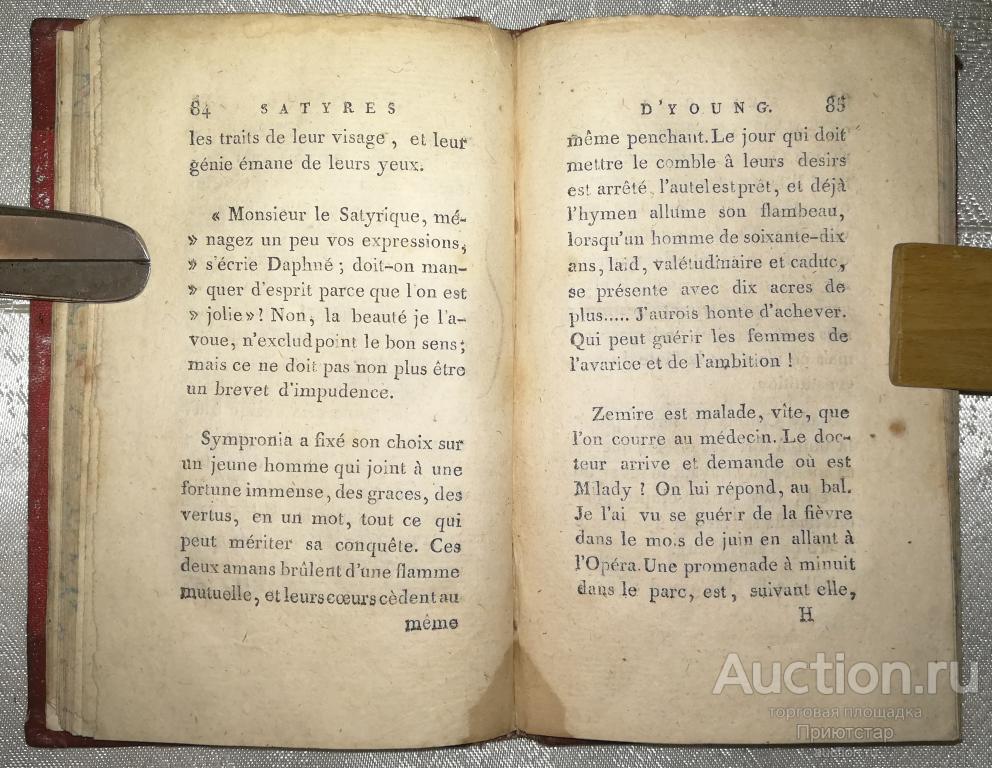 84 SATYRES
les traits de leur visage, et leur
génie émane de leurs yeux.
« Monsieur le Satyrique, mé-
» nagez un peu vos expressions,
» s'écrie Daphné ; doit-on man-
» quer d'esprit parce que l'on est
» jolie» ? Non, la beauté je l'a-
voue, n'exclud point le bon sens ;
mais ce ne doit pas non plus être
un brevet d'impudence.
Sympronia a fixé son choix sur
un jeune homme qui joint à une
fortune immense, des graces, des
vertus, en un mot, tout ce qui
peut mériter sa conquête. Ces
deux amans brûlent d'une flamme
mutuelle, et leurs cœurs cèdent au
même
D'YOUNG. 85
même penchant. Le jour qui doit
mettre le comble â leurs desirs
est arrêté, l'autel est prêt, et déjà
l'hymen allume son flambeau,
lorsqu'un homme de soixante-dix
ans, laid, valétudinaire et caduc,
se présente avec dix acres de
plus..... J'aurois honte d'achever.
Qui peut guérir les femmes de
l'avarice et de l'ambition !
Zemire est malade, vîte, que
l'on courre au médecin. Le doc-
teur arrive et demande où est
Milady ? On lui répond, au bal.
Je l'ai vu se guérir de la fièvre
dans le mois de juin en allant à
l'Opéra. Une promenade à minuit
dans le parc, est, suivant elle,
H
Auction.ru
торговая площадка
Приютстар